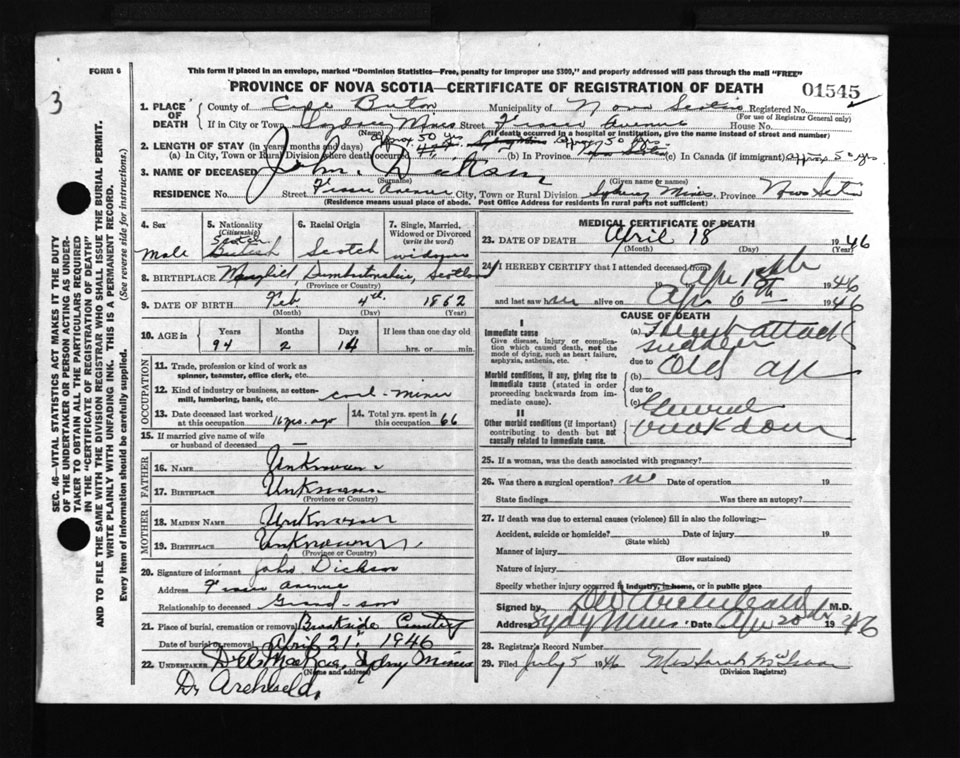 FORM 6
This form if placed in an envelope, marked "Dominion Statistics—Free, penalty for improper use $300," and properly addressed will pass through the mail "FREE"
3
PROVINCE OF NOVA SCOTIA—CERTIFICATE OF REGISTRATION OF DEATH
01545
1. PLACE OF DEATH
County of Cape Breton Municipality of Nova Scotia Registered No.
(For use of Registrar General only)
If in City or Town Sydney Mines Street Fraser Avenue House No.
(Name) (If death occurred in a hospital or institution, give the name instead of street and number)
2. LENGTH OF STAY (in years months and days) approx. 50 yrs approx 50 yrs.
(a) In City, Town or Rural Division where death occurred (b) In Province (c) In Canada (if immigrant) approx 50 yrs
3. NAME OF DECEASED John Dickson
(Surname) (Given name or names)
RESIDENCE No. Street Fraser Avenue City, Town or Rural Division Sydney Mines, Province Nova Scotia
(Residence means usual place of abode. Post Office Address for residents in rural parts not sufficient)
4. Sex
Male
5. Nationality
(Citizenship)
British
6. Racial Origin
Scotch
7. Single, Married, Widowed or Divorced
(write the word)
widower
8. BIRTHPLACE Dumbartonshire, Scotland
(Province or Country)
9. DATE OF BIRTH Feb 4th 1862
(Month) (Day) (Year)
10. AGE in
Years Months Days If less than one day old
94 2 14 hrs. or min.
OCCUPATION
11. Trade, profession or kind of work as spinner, teamster, office clerk, etc.
12. Kind of industry or business, as cotton-mill, lumbering, bank, etc. coal-miner
13. Date deceased last worked at this occupation 16 yrs. ago
14. Total yrs. spent in this occupation 66
15. If married give name of wife or husband of deceased —
FATHER
16. NAME Unknown
17. BIRTHPLACE Unknown
(Province or Country)
MOTHER
18. MAIDEN NAME Unknown
19. BIRTHPLACE Unknown
(Province or Country)
20. Signature of informant John Dickson
Address Fraser Avenue
Relationship to deceased Grand-son
21. Place of burial, cremation or removal Brookside Cemetery
Date of burial or removal April 21, 1946
22. UNDERTAKER Sydney Mines
(Name and address)
Dr Archibald,
MEDICAL CERTIFICATE OF DEATH
23. DATE OF DEATH April 18 1946
(Month) (Day)
24. I HEREBY CERTIFY that I attended deceased from
to 1946
and last saw alive on Apr 6th 1946
CAUSE OF DEATH
I
Immediate cause
Give disease, injury or complication which caused death, not the mode of dying, such as heart failure, asphyxia, asthenia, etc.
(a) Heart attack
sudden
due to
Morbid conditions, if any, giving rise to immediate cause (stated in order proceeding backwards from immediate cause).
(b) Old age
due to
(c) General
II
Other morbid conditions (if important) contributing to death but not causally related to immediate cause.
breakdown
25. If a woman, was the death associated with pregnancy?
26. Was there a surgical operation? no Date of operation 19
State findings Was there an autopsy?
27. If death was due to external causes (violence) fill in also the following:—
Accident, suicide or homicide? Date of injury 19
(State which)
Manner of injury
(How sustained)
Nature of injury
Specify whether injury occurred in industry, in home, or in public place
Signed by Archibald M.D.
Address Sydney Mines Date Apr 20th 1946
28. Registrar's Record Number
29. Filed July 5 1946 Mrs Sarah McIsaac
(Division Registrar)
SEC. 46—VITAL STATISTICS ACT MAKES IT THE DUTY
OF THE UNDERTAKER OR PERSON ACTING AS UNDER-
TAKER TO OBTAIN ALL THE PARTICULARS REQUIRED
IN THE "CERTIFICATE OF REGISTRATION OF DEATH"
AND TO FILE THE SAME WITH THE DIVISION REGISTRAR WHO SHALL ISSUE THE BURIAL PERMIT.
WRITE PLAINLY WITH UNFADING INK. THIS IS A PERMANENT RECORD.
Every item of information should be carefully supplied. (See reverse side for instructions.)